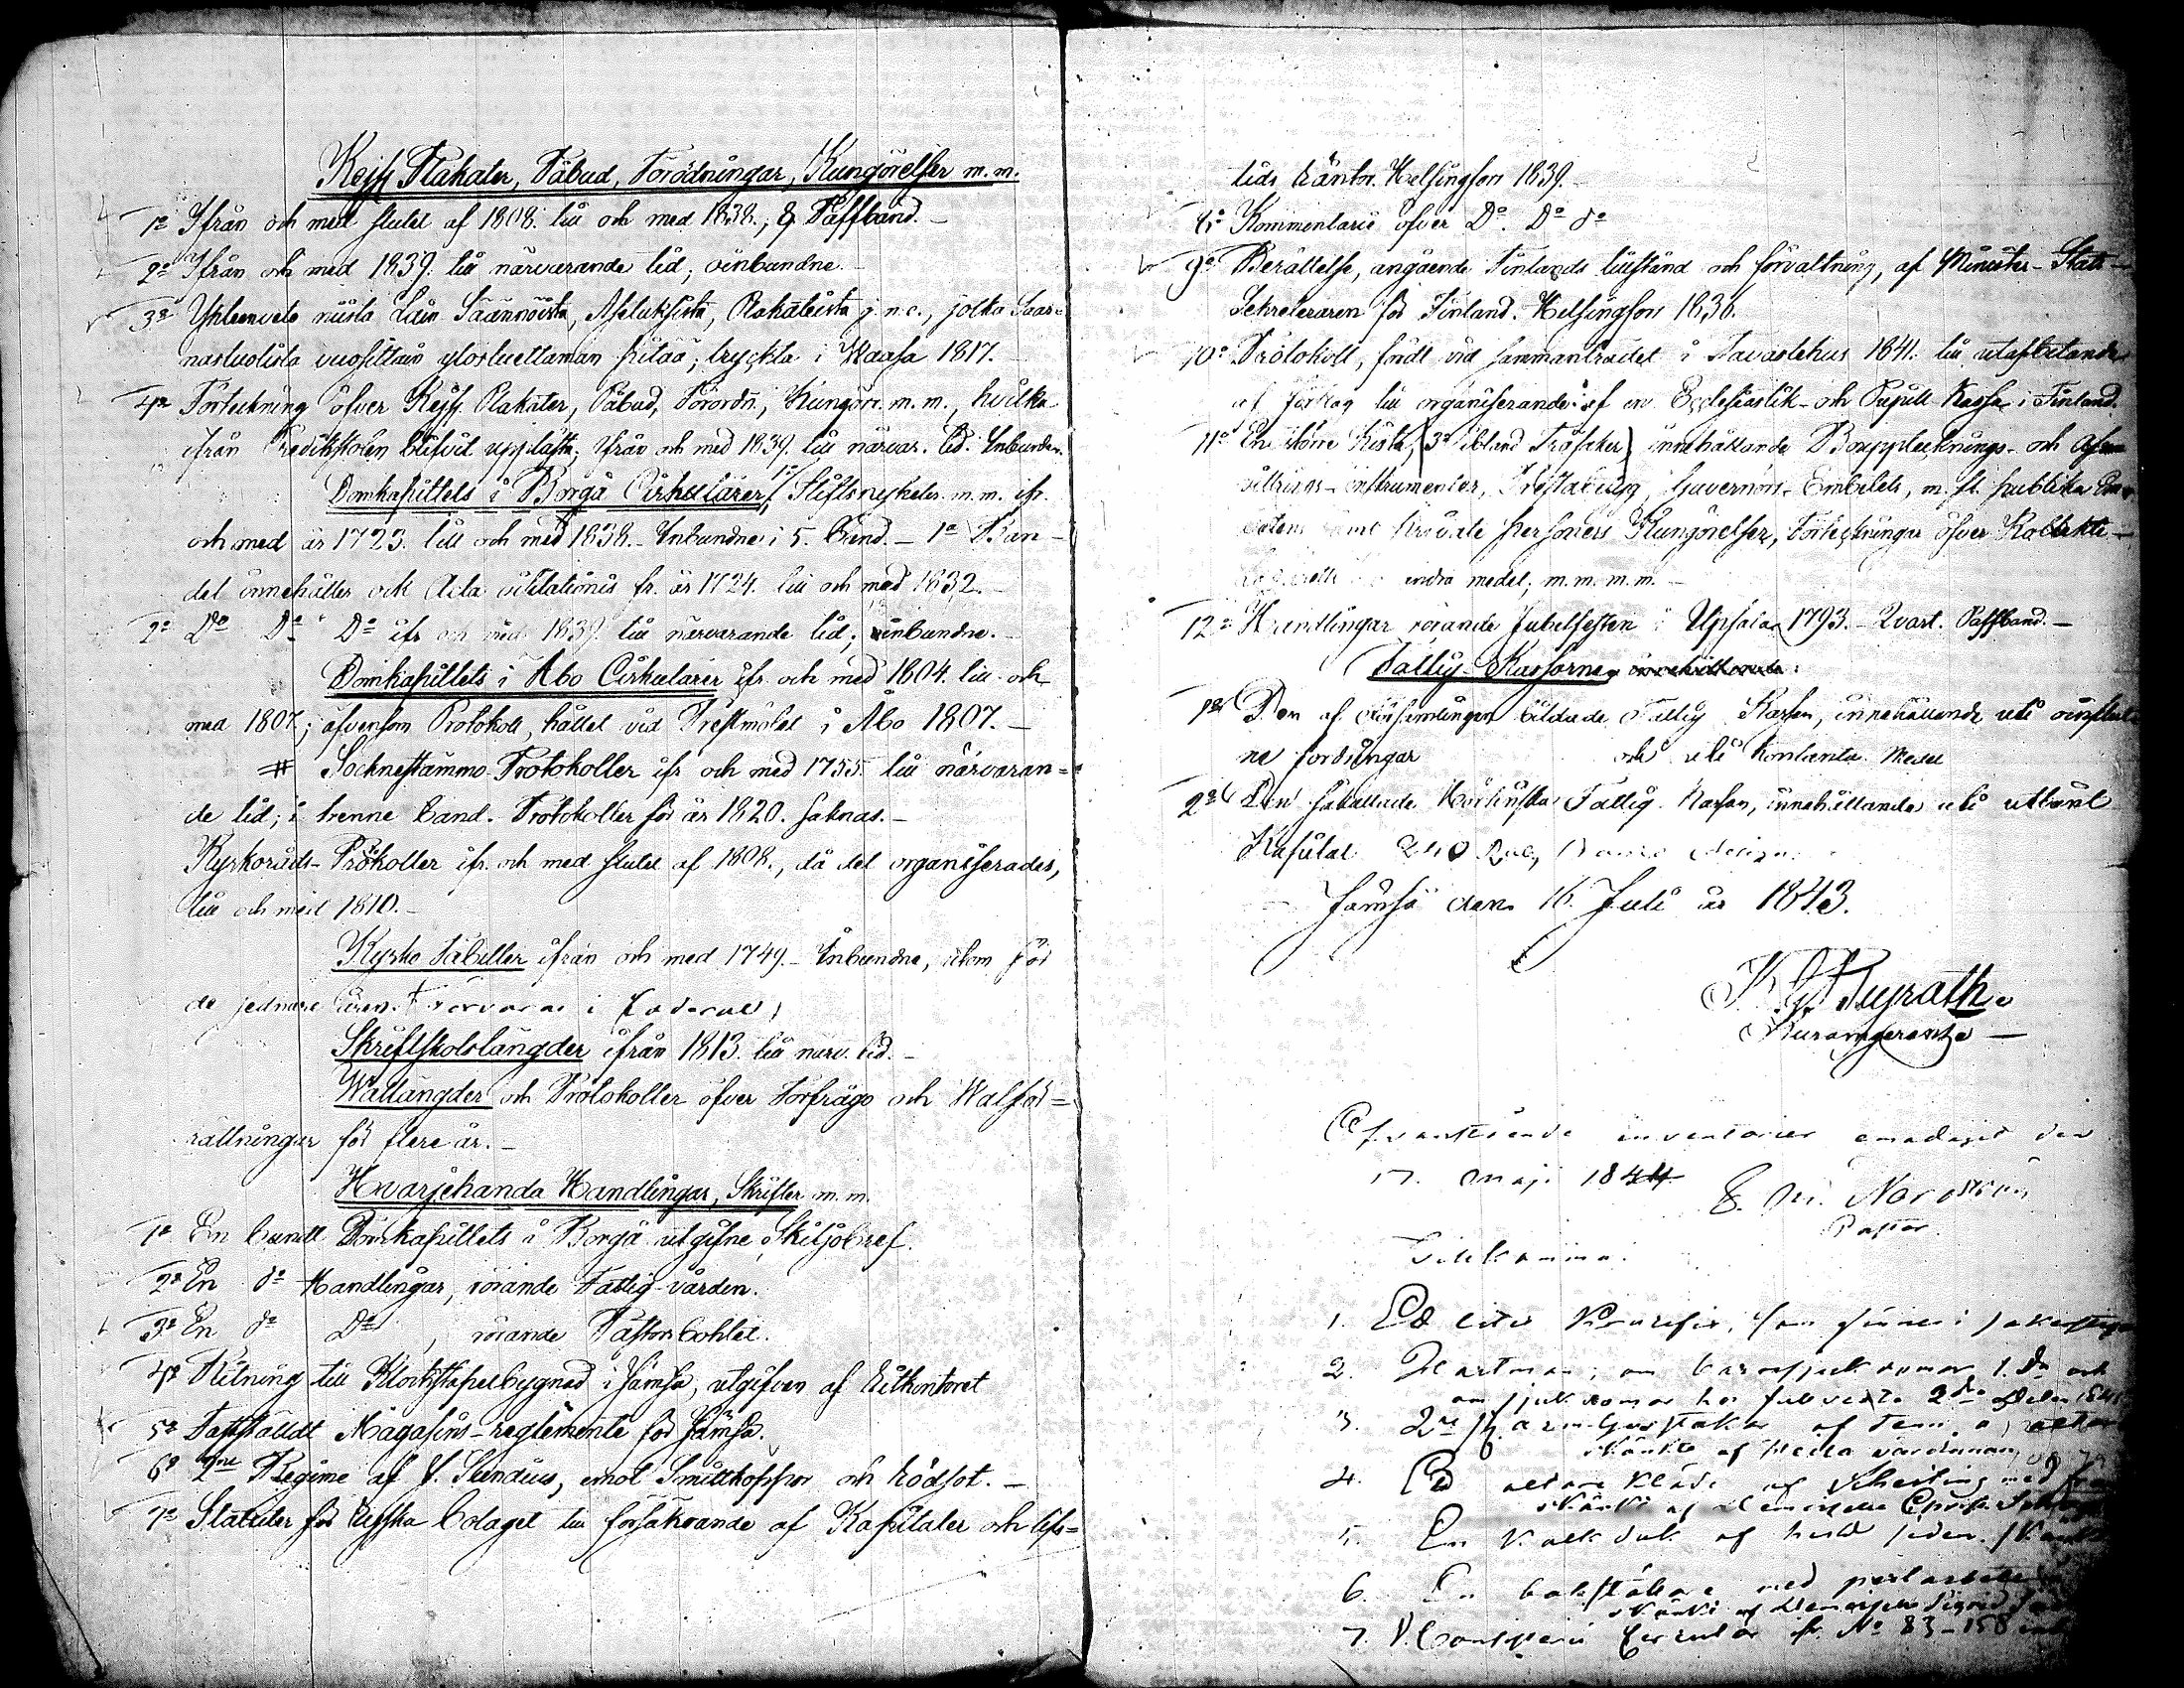 Kejs. Plakater, Påbud, Förordningar, Kungörelser m.m.
1º Ifrån och med slutet af 1808. till och med 1838., 8 Pappband.
2º Ifrån och med 1839. till närvarande tid; oinbundne.
3º Yhteenveto niistä Lain Säännöistä, Asetuksista, Plakateista j.n.e., jotka Saar-
nastuolista vuosittain ylösluettaman pitää; tryckta i Waasa 1817.
4º Förteckning öfver Kejs. Plakater, Påbud, Förordn., Kungör. m.m., hvilka
ifrån Predikstolen blifvit upplästa; ifrån och med 1839. till närvar. tid. Inbunden.
Domkapittels i Borgå Cirkulärer, 1º Stiftsnyheter m.m. ifr.
och med år 1723. till och med 1838. Inbundne i 5. band. 1º Ban-
det innehåller ock Acta visitationis fr. år 1724. till och med 1832.
2º Dº Dº Dº ifr och med 1839. till närvarande tid; oinbundne.
Domkapittlets i Åbo Cirkulärer ifr. och med 1604. till och
med 1807.; äfvensom Protokoll, hållet vid Prestmötet i Åbo 1807.
# Socknestämmo-Protokoller ifr och med 1755. till närvaran-
de tid; i trenne band. Protokoller för år 1820. saknas.
Kyrkoråds-Prokoller ifr. och med slutet af 1808., då det organiserades,
till och med 1810.
Kyrko Tabeller ifrån och med 1749. Inbundne, utom för
de sednare åren. Förvaras i foderal
Skriftskolslängder ifrån 1813. till närv. tid.
Wallängder och Protokoller öfver Förfrågo och Walför-
rättningar för flere år.
Hvarjehanda Handlingar, Skrifter m.m.
1º En bundt Domkapittlets i Borgå utgifne Skiljobref.
2º En dº Handlingar, rörande Fattig-vården.
3º En dº Dº, rörande Pastorsbohlet.
4º Ritning till Klockstapelbygnad i Jämsä, utgifven af Ritkontoret
5º Faststäldt Magasins-reglemente för Jämsä.
6º 2ne Regime af f. Sundius, emot Smittkoppor och Rödsot.
7º Statuter för Ryska bolaget till försäkrande af Kapitaler och lifs-
tids räntor. Helsingfors 1839.
8º Kommentarie öfver Dº. Dº dº
9º Berättelse, angående Finlands tillstånd och förvaltning, af Minister-Stats-
Sekreteraren för Finland. Helsingfors 1836.
10º Protokoll, fördt vid sammanträdet i Tavastehus 1841. till utarbetande
af förslag till organiserande af en Ecclesiastik- och Pupill Kassa i Finland.
11º En större Kista, innehållande Bouppteckning- och
instrumenter, Guvernörs-Embetets, m. fl. publika
samt Privata personers Kungörelser, Förteckningar öfver Kollekte-
andra medel; m.m. m.m.
12º Handlingar rörande Jubelfesten i Upsala 1793. Qvart. Pappband.
Fattig-Kassorne, innehållande:
1º Den af Församlingen bildade Fattig Kassan, innehållande uti
ne fordringar och uti kontanta medel
2º Den så kallade Fattig Kassan, innehållande uti utlånt
Kapital 240 Rub,
Jämsä den 16. Juli år 1843.
Ofvanstående inventarier emottagit den
17. Maj. 1844
Nordström
Pastor.
Tillkomna:
1. Ett litet Krucifix, som finnes i
2. Hartman, om barnsjukdomar 1. Dn och
om sjukdomar hos fullvexta 2dra Delen
3. 2ne
skänkte af
4. Ett altare kläde af
skänkt af
5. En kalk duk af hvitt siden,
6. En med perlarbete
skänkt af
7. Circulär ifr. Nº 83-158